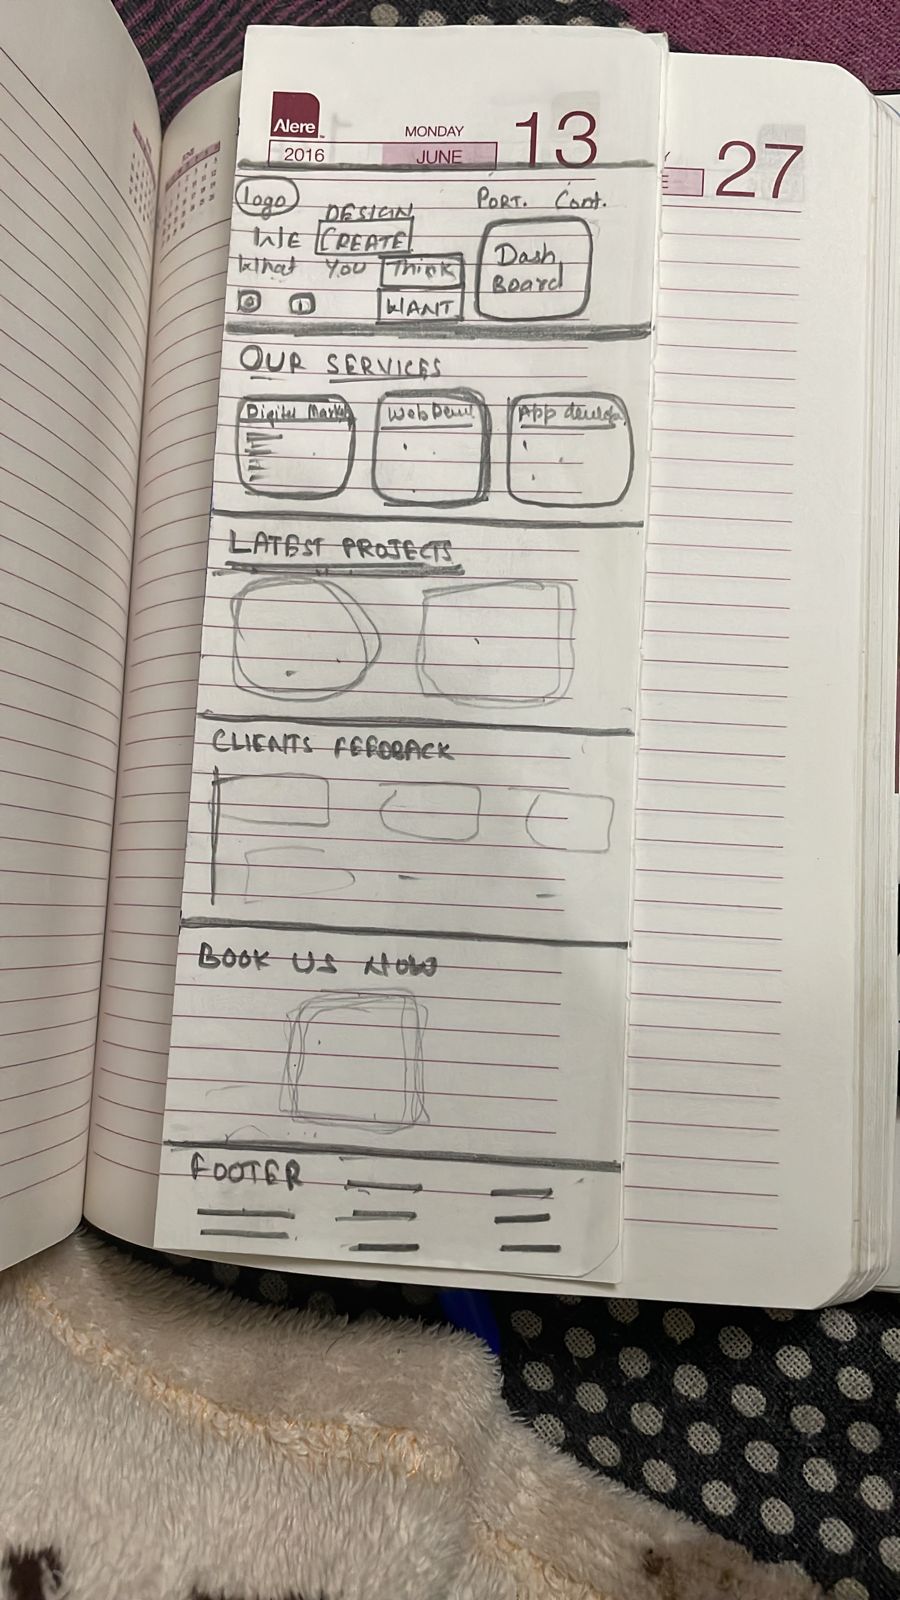 Alere
MONDAY
13
2016
JUNE
27
Logo
PORT. Cont.
DESIGN
WE CREATE
What YOU Think
WANT
Dash
Board
OUR SERVICES
Digital Market
Web
App develop
LATEST PROJECTS
CLIENTS FEEDBACK
BOOK US NOW
FOOTER